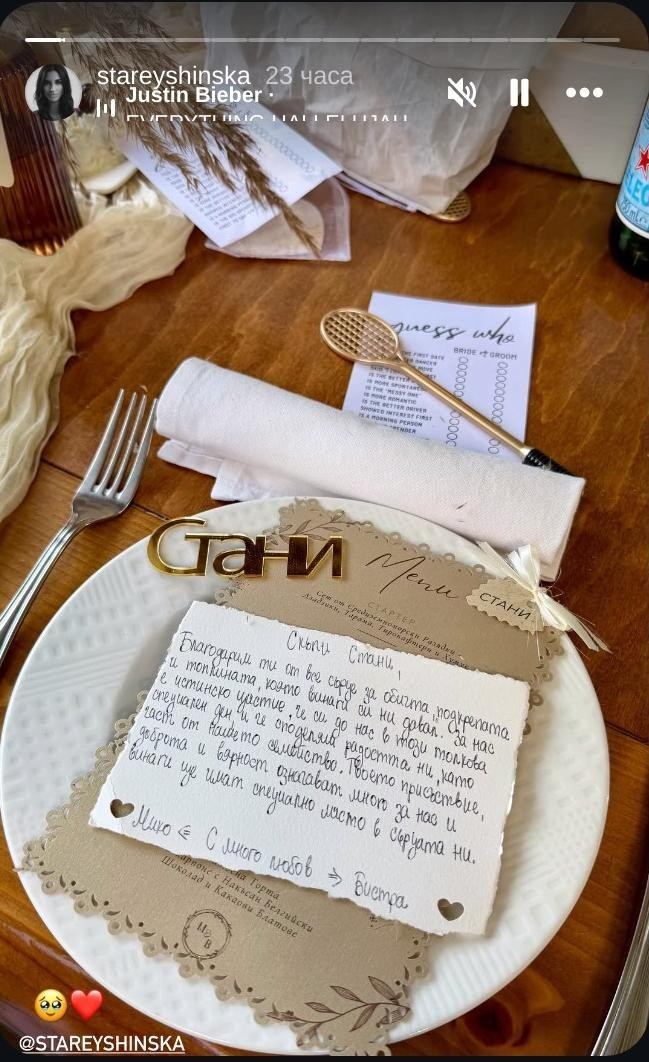 stareyshinska 23 часа
Justin Bieber ·
EVERYTHING HALLELUJAH
guess who
BRIDE or GROOM
THE FIRST DATE
IS THE BETTER
IS MORE SPONTANE
IS THE "MESSY ONE"
IS MORE ROMANTIC
IS THE BETTER DRIVER
SHOWED INTEREST FIRST
IS A MORNING PERSON
Стани
Menu
СТАНИ
СТАРТЕР
Сет от Средиземноморски Разядки
Скъпи Стани,
Благодарим ти от все сърце за обичта, подкрепата
и топлината, която винаги си ни давал. За нас
е истинско щастие, че си до нас в този толкова
специален ден и че споделяш радостта ни, като
част от нашето семейство. Твоето присъствие,
доброта и вярност означават много за нас и
винаги ще имат специално място в сърцата ни.
Мико С много любов Бистра
Торта
с Накъсан Белгийски
Шоколад и Какаови Блатове
M
B
@STAREYSHINSKA